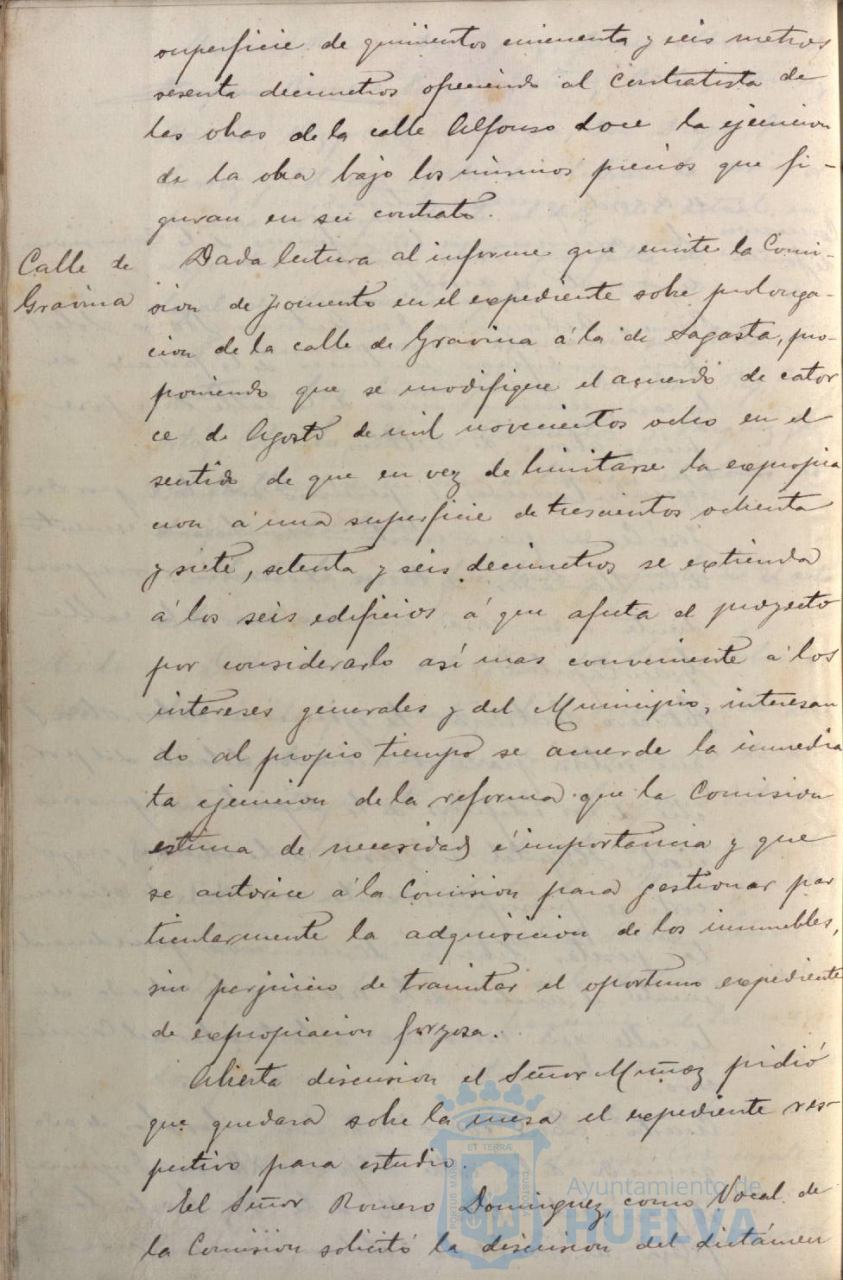 superficie de quinientos cincuenta y seis metros
sesenta decimetros ofreciendo al Contratista de
las obras de la calle Alfonso doce la ejecucion
de la obra bajo los mismos precios que fi-
guran en su contrato.
Calle de
Gravina
Dada lectura al informe que emite la Comi-
sion de Fomento en el expediente sobre prolonga-
cion de la calle de Gravina á la de Sagasta, pro-
poniendo que se modifique el acuerdo de cator
ce de Agosto de mil novecientos ocho en el
sentido de que en vez de limitarse la expropia
cion á una superficie de trescientos ochenta
y siete, setenta y seis decimetros se extienda
á los seis edificios á que afecta el proyecto
por considerarlo así mas conveniente á los
intereses generales y del Municipio, interesan
do al propio tiempo se acuerde la inmedia
ta ejecucion de la reforma que la Comision
estima de necesidad é importancia y que
se autorice á la Comision para gestionar par
ticularmente la adquisicion de los inmuebles,
sin perjuicio de tramitar el oportuno expediente
de expropiacion forzosa.
Abierta discusion el Señor Muñoz pidió
que quedara sobre la mesa el expediente res-
pectivo para estudio.
El Señor Romero Dominguez, como Vocal de
la Comision solicitó la discusion del dictámen
ET TERRÆ
PORTUS MARIS
CUSTODIA
Ayuntamiento de
HUELVA